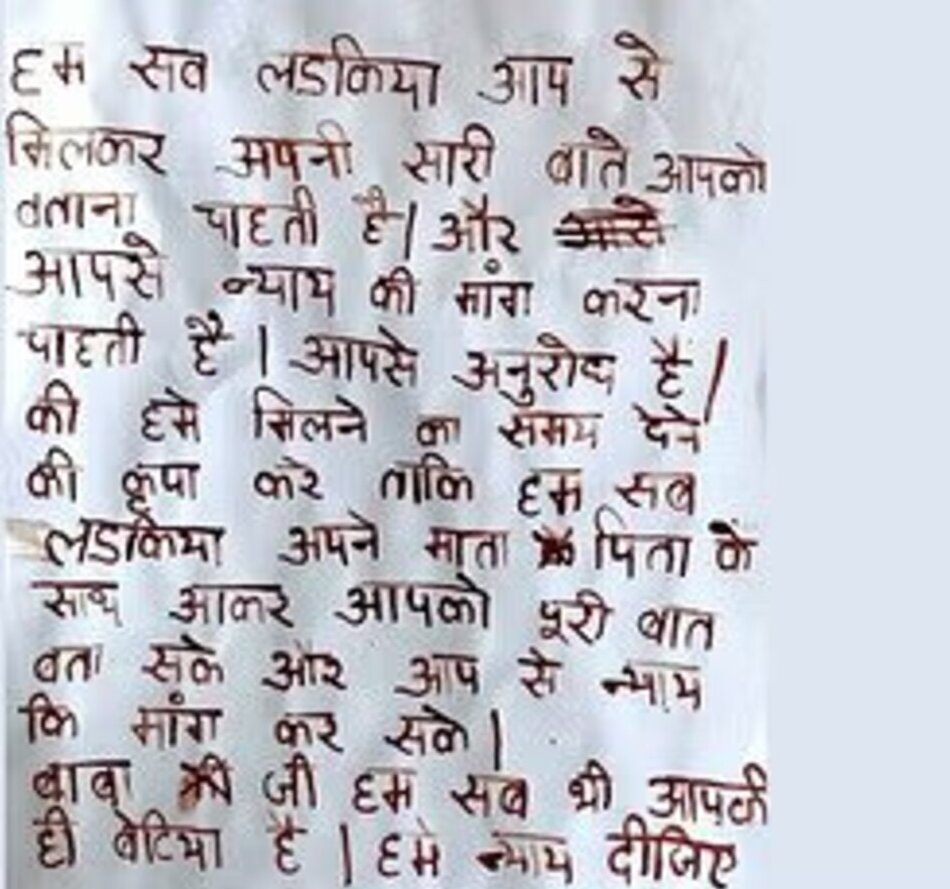 हम सव लडकिया आप से
मिलकर अपनी सारी वाते आपको
वताना चाहती है। और
आपसे न्याय की मांग करना
चाहती है। आपसे अनुरोध है।
की हमे मिलने का समय देने
की कृपा करे ताकि हम सब
लडकिया अपने माता पिता के
साथ आकर आपको पूरी वात
वता सके और आप से न्याय
कि मांग कर सके।
बाबा जी हम सब भी आपकी
ही वेटिया है। हमे न्याय दीजिए